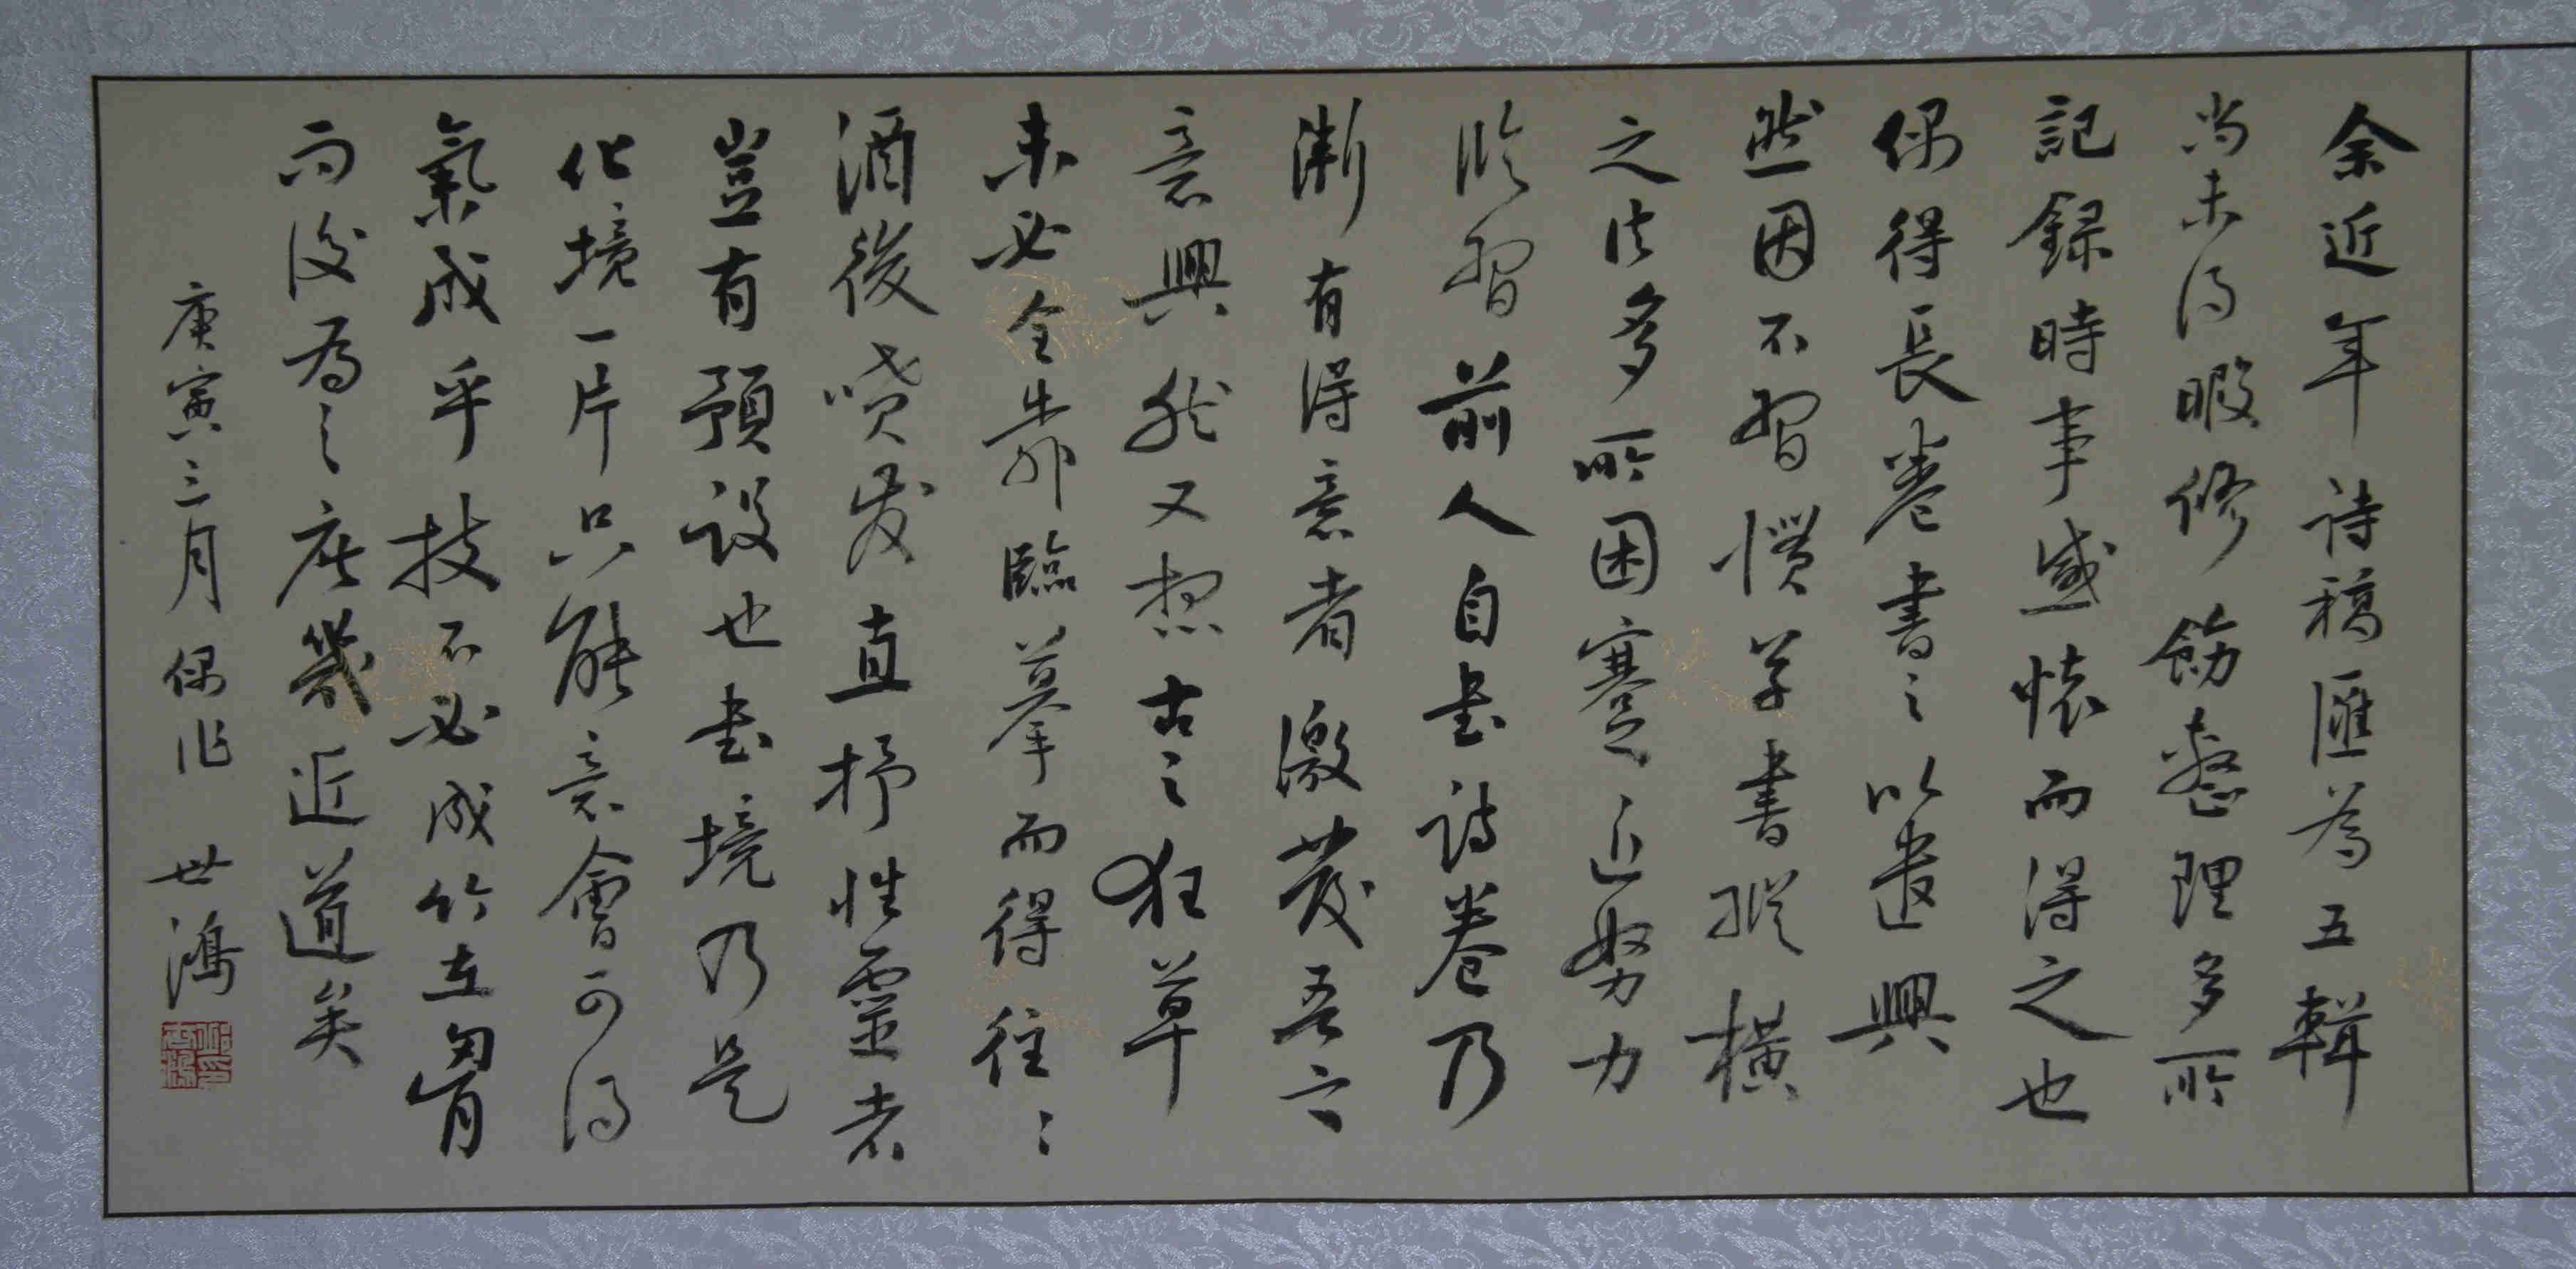 余近年詩稿匯為五輯
尚未得暇修飭整理多所
記録時事感懷而得之也
偶得長卷書之以遣興
然因不習慣学書縱橫
之法多所困蹇近努力
臨習前人自书诗卷乃
漸有得意者激發吾六
意興然又想古之狂草
未必全靠臨摹而得往〻
酒後喷发直抒性靈者
豈有預設也书境乃是
化境一片只能意會可得
氣成乎技不必成竹在胷
而後為之庶幾近道矣
庚寅三月偶作 世鴻